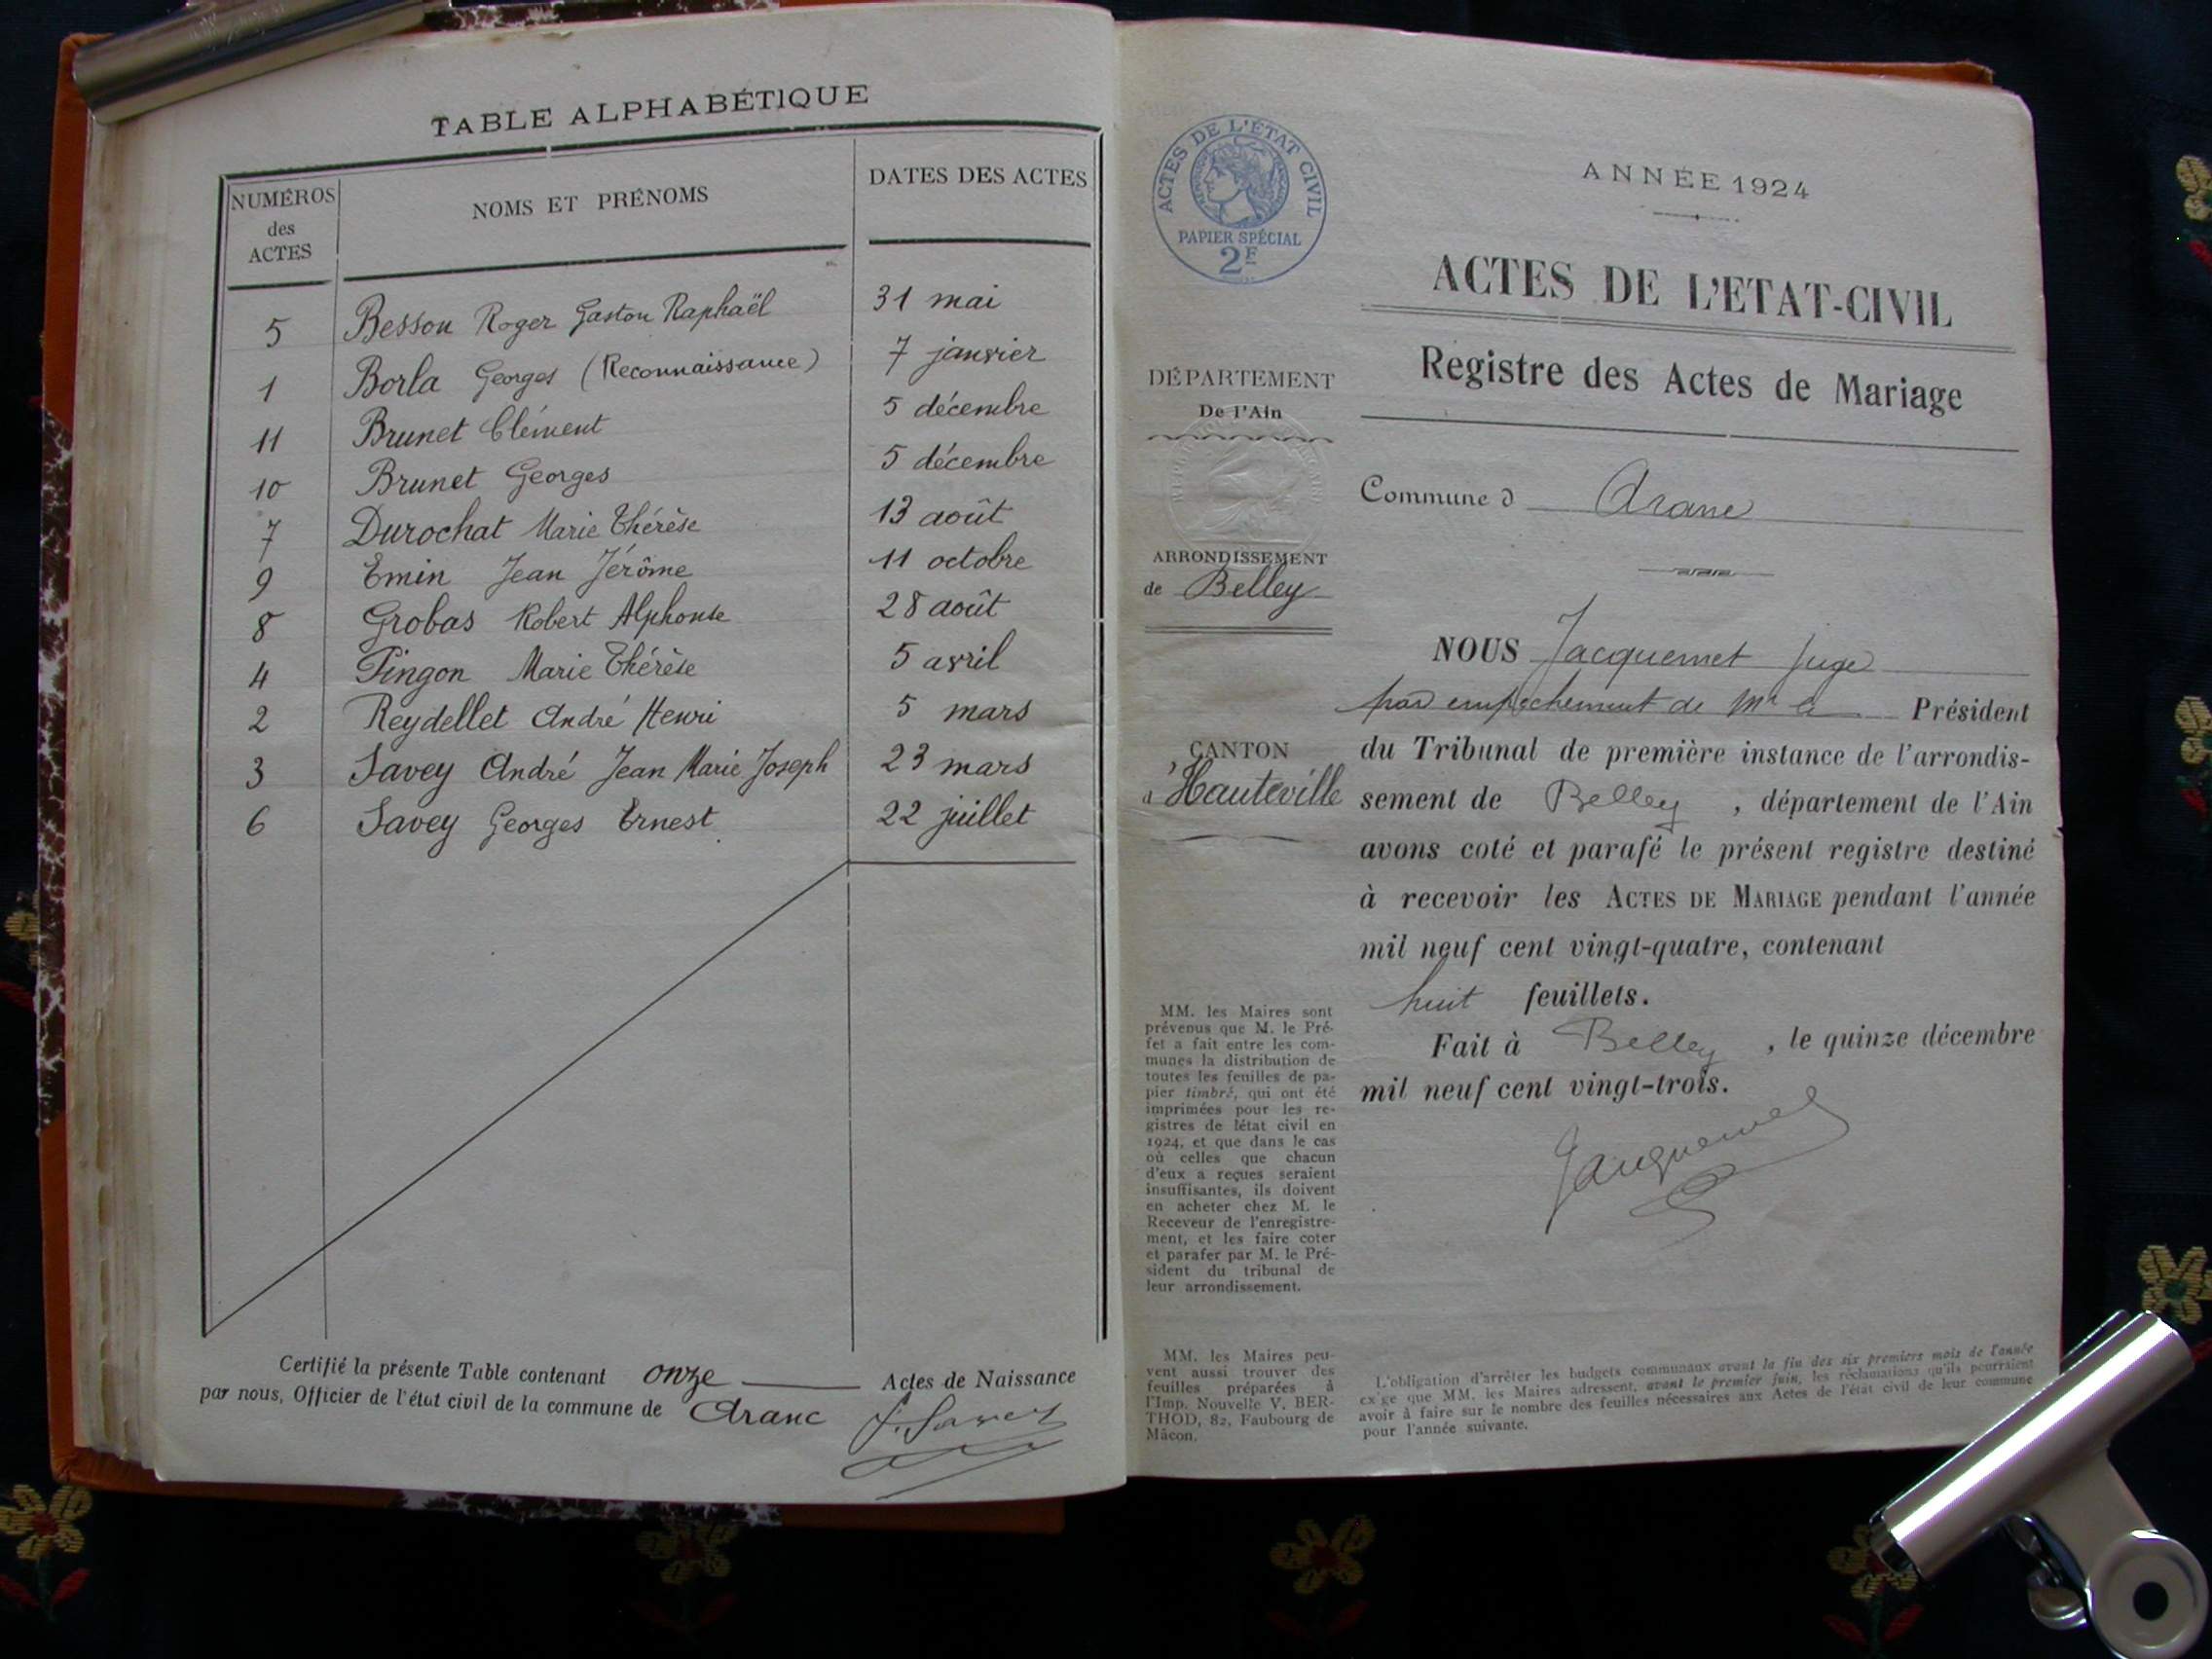 TABLE ALPHABÉTIQUE
NUMÉROS des ACTES NOMS ET PRÉNOMS DATES DES ACTES
5 Besson Roger Gaston Raphaël 31 mai
1 Borla Georges (Reconnaissance) 7 janvier
11 Brunet Clément 5 décembre
10 Brunet Georges 5 décembre
7 Durochat Marie Thérèse 13 août
9 Emin Jean Jérôme 11 octobre
8 Grobas Robert Alphonse 28 août
4 Pingon Marie Thérèse 5 avril
2 Reydellet André Henri 5 mars
3 Savey André Jean Marie Joseph 23 mars
6 Savey Georges Ernest 22 juillet
Certifié la présente Table contenant onze Actes de Naissance
par nous, Officier de l'état civil de la commune de Aranc
J. Savey
ACTES DE L'ÉTAT CIVIL
PAPIER SPÉCIAL
2F
DÉPARTEMENT
De l'Ain
ARRONDISSEMENT
de Belley
CANTON
d'Hauteville
MM. les Maires sont
prévenus que M. le Pré-
fet a fait entre les com-
munes la distribution de
toutes les feuilles de pa-
pier timbré, qui ont été
imprimées pour les re-
gistres de létat civil en
1924, et que dans le cas
où celles que chacun
d'eux a reçues seraient
insuffisantes, ils doivent
en acheter chez M. le
Receveur de l'enregistre-
ment, et les faire coter
et parafer par M. le Pré-
sident du tribunal de
leur arrondissement.
MM. les Maires peu-
vent aussi trouver des
feuilles préparées à
l'Imp. Nouvelle V. BER-
THOD, 82, Faubourg de
Mâcon.
ANNÉE 1924
ACTES DE L'ETAT-CIVIL
Registre des Actes de Mariage
Commune d Aranc
NOUS Jacquemet juge
par empêchement de Mr le Président
du Tribunal de première instance de l'arrondis-
sement de Belley, département de l'Ain
avons coté et parafé le présent registre destiné
à recevoir les ACTES DE MARIAGE pendant l'année
mil neuf cent vingt-quatre, contenant
huit feuillets.
Fait à Belley, le quinze décembre
mil neuf cent vingt-trois.
Jacquemet
L'obligation d'arrêter les budgets communaux avant la fin des six premiers mois de l'année
exige que MM. les Maires adressent, avant le premier juin, les réclamations qu'ils pourraient
avoir à faire sur le nombre des feuilles nécessaires aux Actes de l'état civil de leur commune
pour l'année suivante.